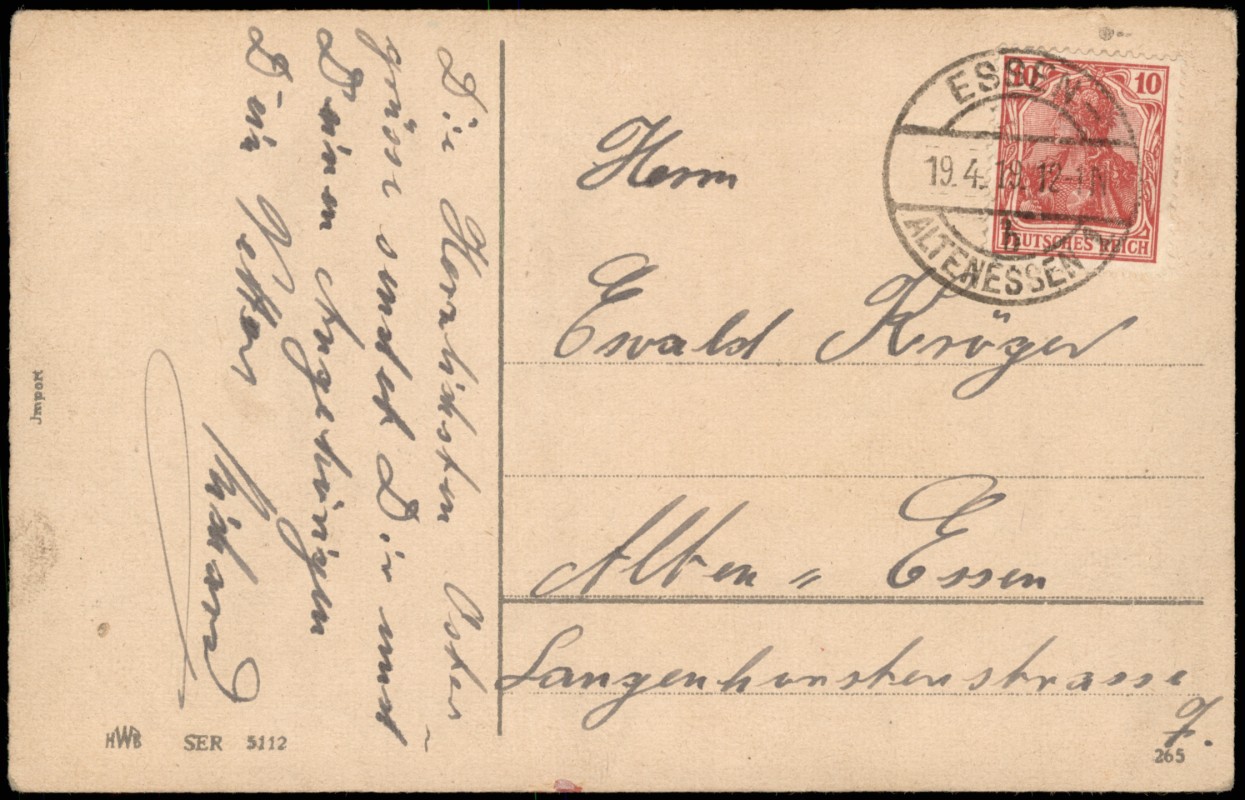 Die Herzlichsten Oster-
grüsse sendet Dir und
Deinen Angehörigen
Dein Vetter
Richard
Herrn
Ewald Kröger
Alten " Essen
Langenhorsterstrasse
7.
ESSEN-
19.4.19.12-1N
h
ALTENESSEN
10 10
DEUTSCHES REICH
Jmport
HWB SER 5112
265